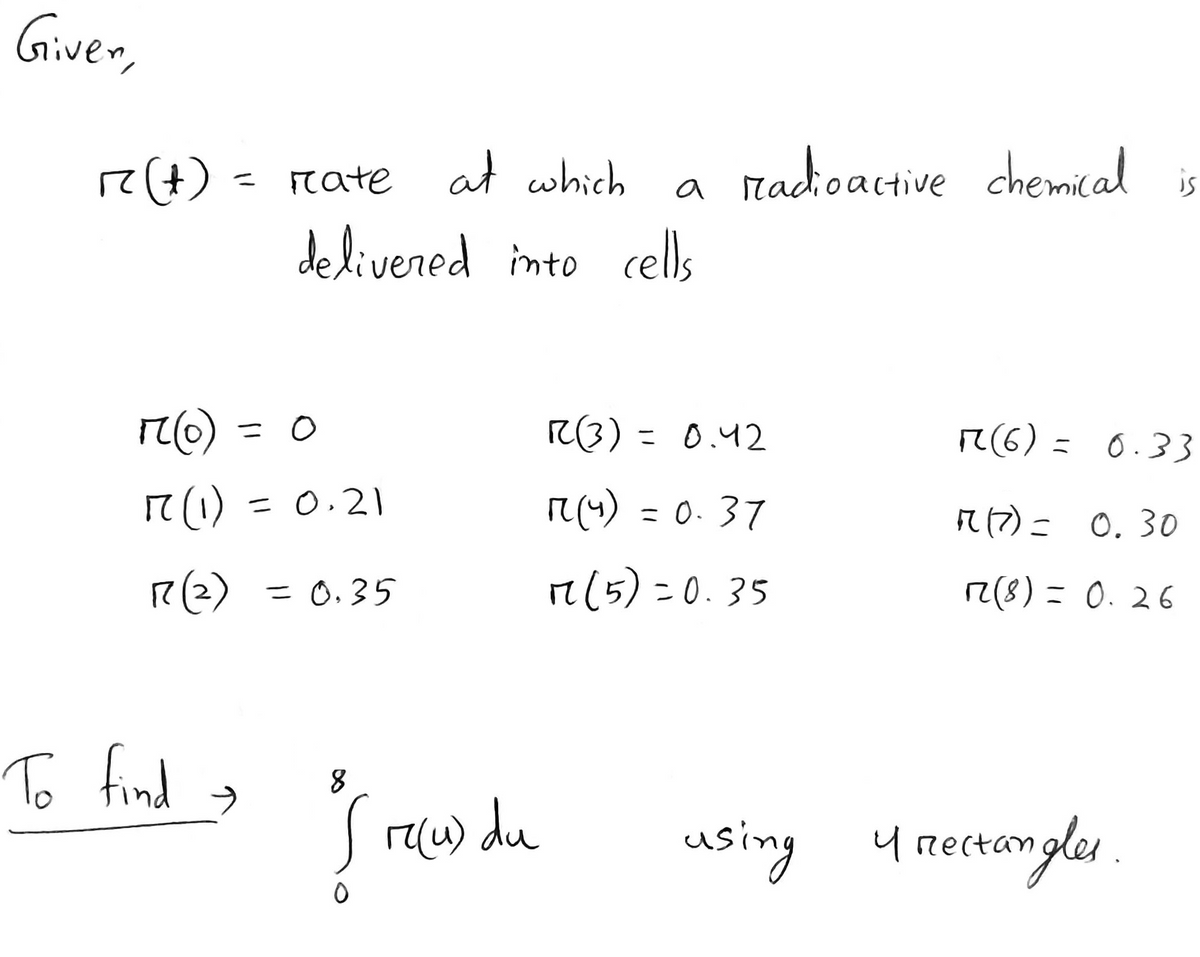 Given,
r(t) = rate at which a radioactive chemical is
delivered into cells
r(0) = 0 r(3) = 0.42 r(6) = 0.33
r(1) = 0.21 r(4) = 0.37 r(7) = 0.30
r(2) = 0.35 r(5) = 0.35 r(8) = 0.26
To find → ∫₀⁸ r(u) du using 4 rectangles.